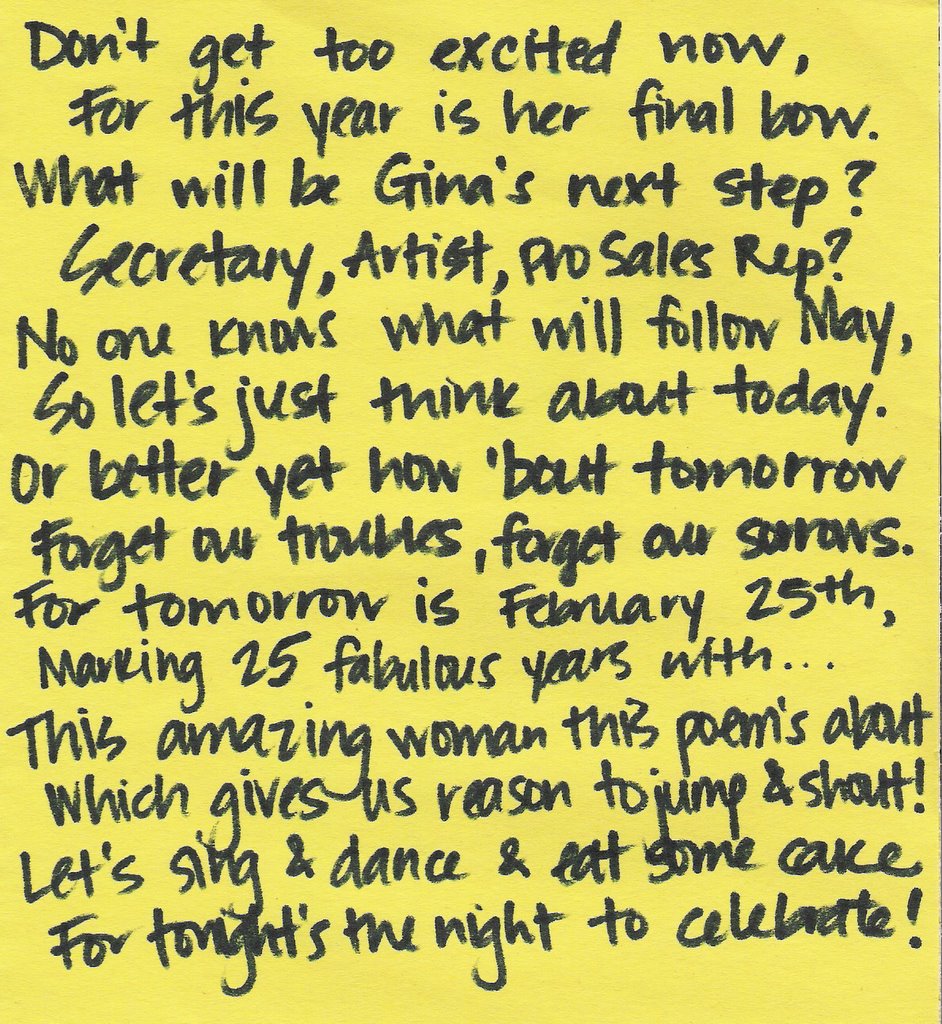 Don't get too excited now,
For this year is her final bow.
What will be Gina's next step?
Secretary, Artist, Pro Sales Rep?
No one knows what will follow May,
So let's just think about today.
Or better yet how 'bout tomorrow
Forget our troubles, forget our sorrows.
For tomorrow is February 25th,
Marking 25 fabulous years with...
This amazing woman this poem's about
Which gives us reason to jump & shout!
Let's sing & dance & eat some cake
For tonight's the night to celebrate!